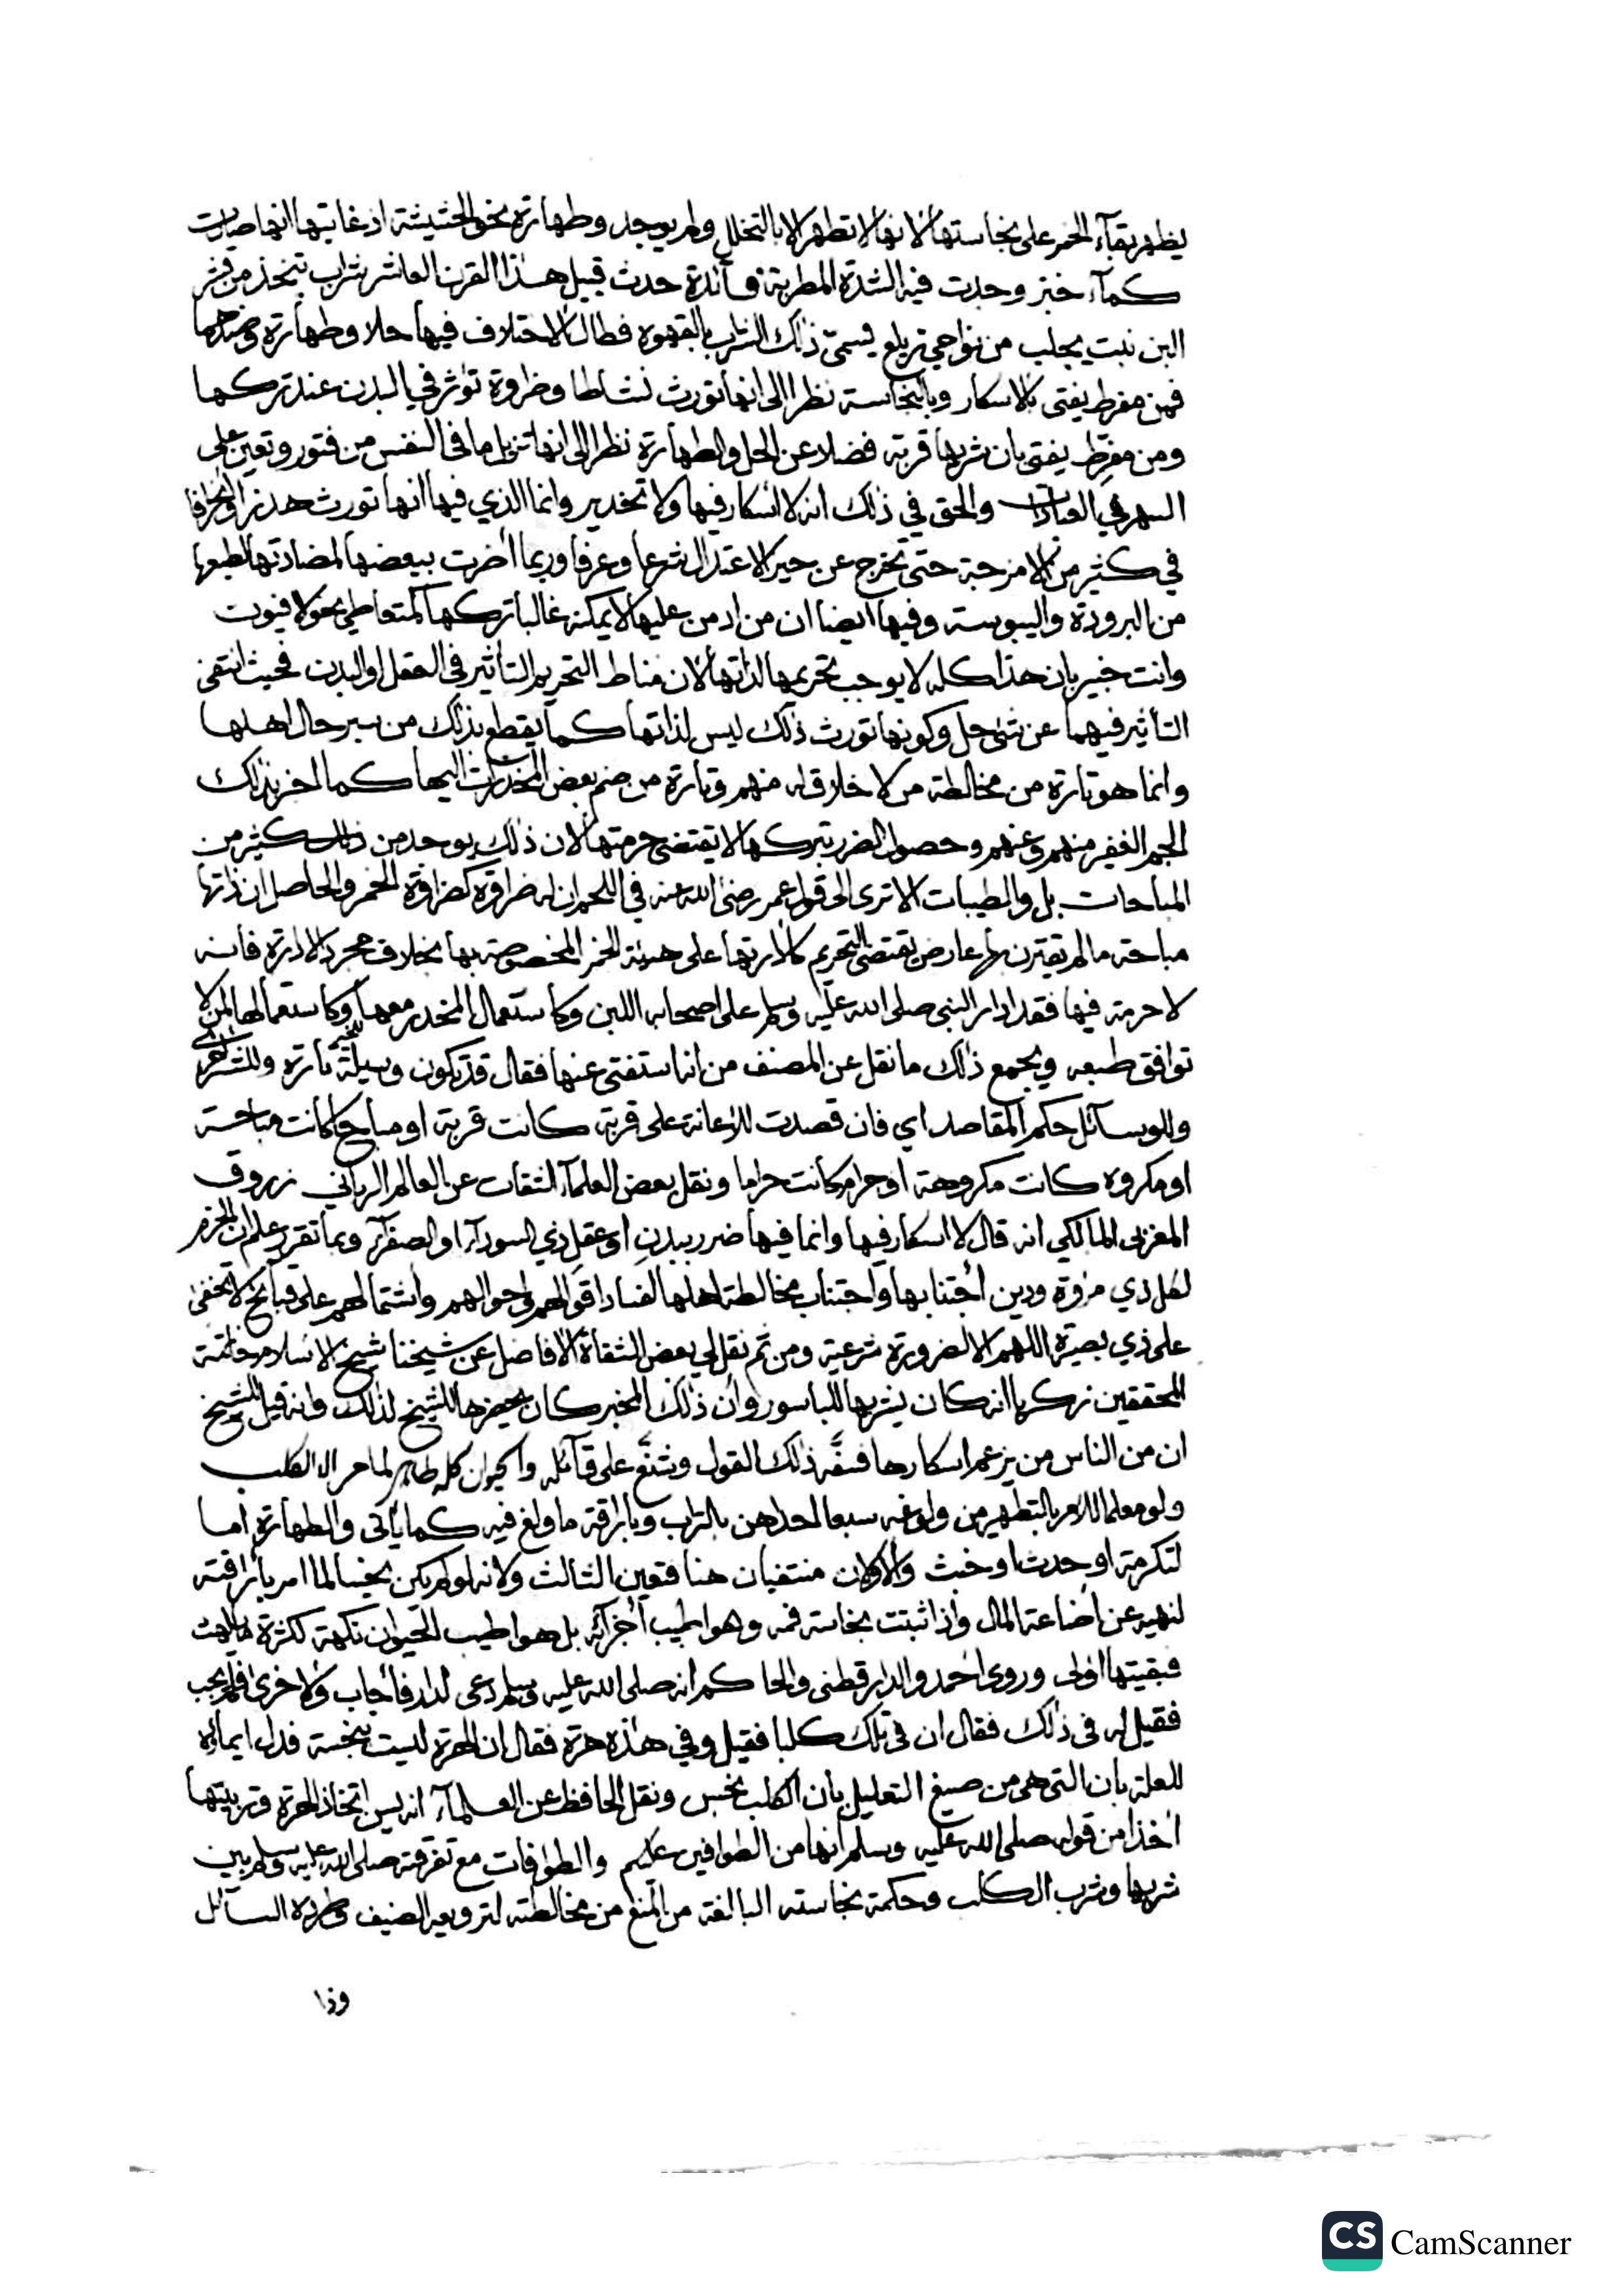 يظهر بقآء الخمر على نجاستها لانها لا تطهر الا بالتخلل ولم يوجد وطهارة نحو الحشيشة اذ غايتها انها صارت
كمآء خبز وجدت فيه الشدة المطربة فآئدة حدث قبيل هذا القرن العاشر شراب يتخذ من قشر
البن نبت يجلب من نواحي زيلع يسمى ذلك الشراب بالقهوة فطال الاختلاف فيها حلا وطهارة وضدهما
فمن مفرط يفتى بالاسكار وبالنجاسة نظرا الى انها تورث نشاطا وضراوة تؤثر في البدن عند تركها
ومن مفرط يفتى بان شربها قربة فضلا عن الحل والطهارة نظرا الى انها تزيل ما في النفس من فتور وتعين على
السهر في العبادات والحق في ذلك انه لا اسكار فيها ولا تخدير وانما الذي فيها انها تورث هذرا وانحرافا
في كثير من الامزجة حتى تخرج عن حيز الاعتدال شرعا وعرفا وربما أضرت ببعضها لمضادتها لطبعها
من البرودة واليبوسة وفيها أيضا ان من ادمن عليها لا يمكنه غالبا تركها كمتعاطي نحو الافيون
وانت خبير بان هذا كله لا يوجب تحريمها لذاتها لان مناط التحريم التأثير في العقل او البدن فحيث انتفى
التأثير فيهما عن شئ حل وكونها تورث ذلك ليس لذاتها كما يقطع بذلك من سبر حال اهلها
وانما هو تارة من مخالطة من لا خلاق له منهم وتارة من ضم بعض المخدرات اليها كما اخبر بذلك
الجم الغفير منهم وعنهم وحصول الضرر بتركها لا يقتضى حرمتها لان ذلك يوجد من كثير من
المباحات بل والطيبات الا ترى الى قول عمر رضى الله عنه في اللحم ان له ضراوة كضراوة الخمر والحاصل ان ذاتها
مباحة ما لم يقترن بها عارض يقتضى التحريم كادارتها على هيئة الخمر المخصوصة بها بخلاف مجرد الادارة فانه
لا حرمة فيها فقد ادار النبى صلى الله عليه وسلم على اصحابه اللبن وكاستعمال المخدر معها وكاستعمالها لمن لا
توافق طبعه ويجمع ذلك ما نقل عن المصنف من انه استفتى عنها فقال قد تكون وسيلة للخير تارة وللشر اخرى
وللوسآئل حكم المقاصد اي فان قصدت للاعانة على قربة كانت قربة او مباح كانت مباحة
او مكروه كانت مكروهة او حرام كانت حراما ونقل بعض العلمآء الثقات عن العالم الرباني زروق
المغربى المالكي انه قال لا اسكار فيها وانما فيها ضرر ببدن او عقل ذي السودآء او الصفرآء وبما تقرر علم ان الحزم
لكل ذي مروة ودين اجتنابها واجتناب مخالطة اهلها لفساد اقوالهم واحوالهم واشتمالهم على قبائح لا تخفى
على ذي بصيرة اللهم الا لضرورة شرعية ومن ثم نقل لي بعض الثقاة الافاضل عن شيخنا شيخ الاسلام خاتمة
المحققين زكريا انه كان يشربها للباسور وان ذلك المخبر كان يحضرها للشيخ لذلك وانه قيل للشيخ
ان من الناس من يزعم اسكارها فسفّه ذلك القول وشنّع على قآئله والحيوان كله طاهر لما مر الا الكلب
ولو معلما للامر بالتطهير من ولوغه سبعا احداهن بالتراب وباراقة ما ولغ فيه كما يأتى والطهارة اما
لتكرمة او حدث او خبث والاولان منتفيان هنا فتعين الثالث ولانه لو لم يكن نجسا لما امر باراقته
لنهيه عن اضاعة المال واذا ثبتت نجاسة فمه وهو اطيب أجزآئه بل هو اطيب الحيوان نكهة لكثرة ما يلهث
فبقيتها اولى وروى احمد والدارقطنى والحاكم انه صلى الله عليه وسلم دعى لدار فأجاب ولاخرى فلم يجب
فقيل له في ذلك فقال ان في تلك كلبا فقيل وفي هذه هرة فقال ان الهرة ليست بنجسة فدل ايمآؤه
للعلة بان التى هى من صيغ التعليل بأن الكلب نجس ونقل الحافظ عن العلمآء انه يسن اتخاذ الهرة وتربيتها
أخذا من قوله صلى الله عليه وسلم انها من الطوافين عليكم والطوافات مع تفرقته صلى الله عليه وسلم بين
شربها وشرب الكلب وحكمة نجاسته البالغة من المنع من مخالطته لترويعه الضيف وطرده السآئل
وذا
CS CamScanner